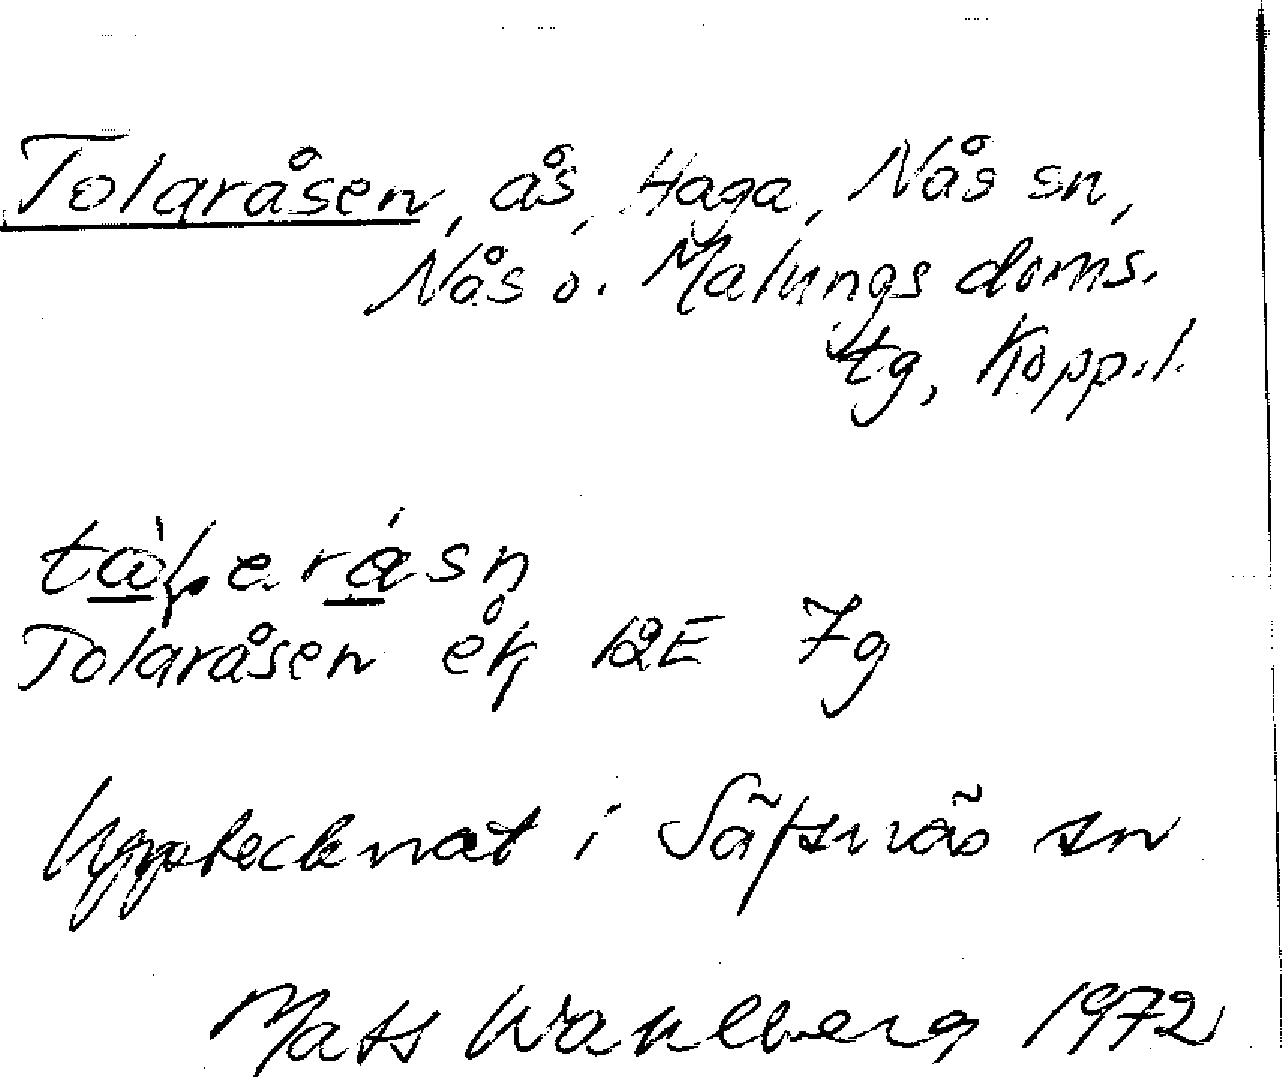 Tolaråsen, ås, Haga, Nås sn,
Nås o. Malungs doms.
tg, Kopp.l.
Tolaråsen ek 12E 7g
Upptecknat i Säfsnäs sn
Mats Wahlberg 1972